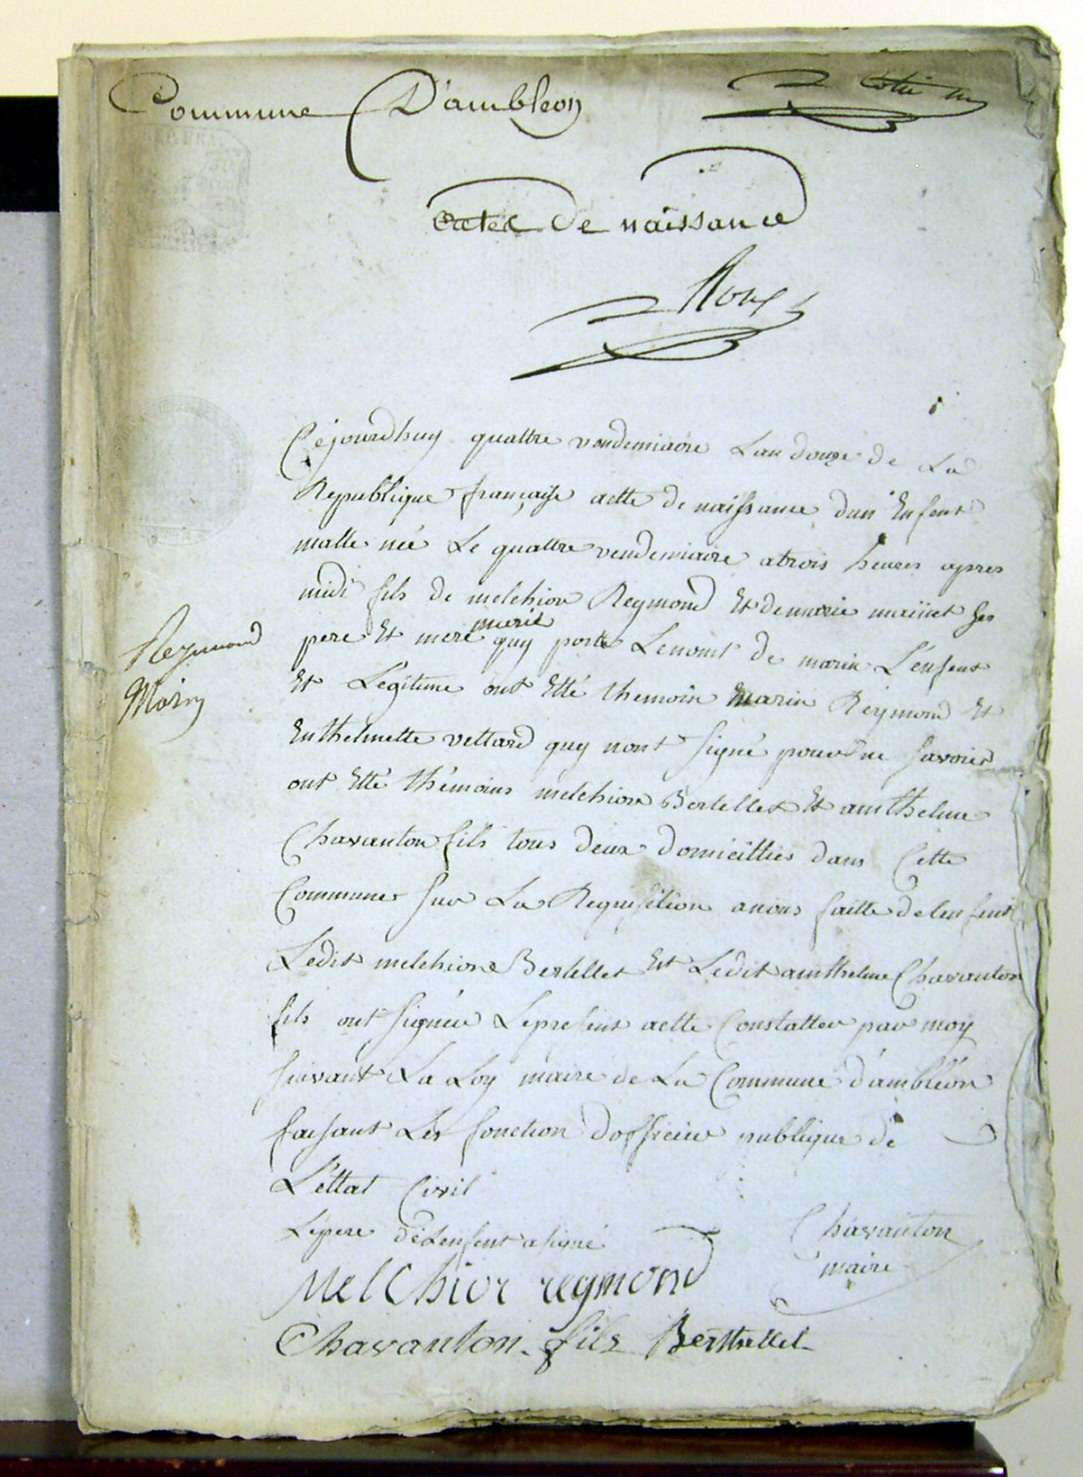 Commune D'ambleon
Actes de naissance
Roux
Cejourdhuy quattre vendemiaire Lan douze de La
Republique française actte de naissance dun Enfent
malle née Le quattre vendemiaire atrois heures apres
midi fils de melchior Reymond Et demarie ses
marié
pere Et mere quy porte Lenomt de marin L'enfent
Reymond
Et Légitime ont Etté themoin marin Reymond Et
Marin
Enthelmette vettard quy nont signé pour ne savoir
ont Etté thémoins melchiore Bertellet Et amthelme
Chavanton fils tous deux domicilliés dans Cette
Commune sur La Requisition anous faitte delenfent
Ledit melchiore Bertellet Et Ledit amthelme Chavanton
fils ont signée Lepresent actte Constatter par moy
suivant La Loy maire de La Commune d'ambléon
faisant Les fonction dofficier publique de
L'éttat Civil
Lepere deLenfent asigné
Chavanton
maire
MelChior reymond
Chavanton fils Berthellet